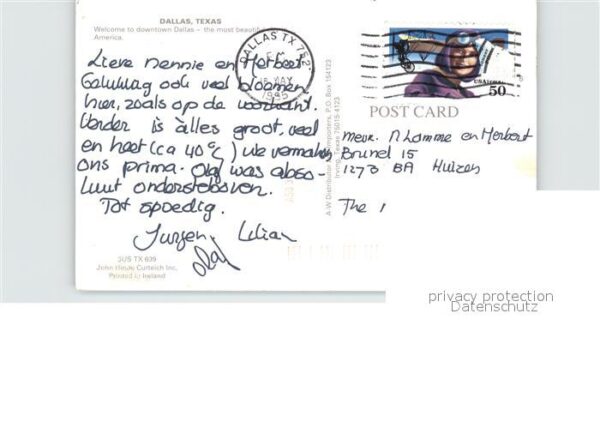 DALLAS, TEXAS
Welcome to downtown Dallas - the most beautiful
America.
Lieve Nennie en Herbert
Gelukkig ook veel bloemen
hier, zoals op de voorkant.
Verder is alles groot, veel
en heet (ca 40°C) we vermaken
ons prima. Olaf was abso-
luut ondersteboven.
Tot spoedig.
Jurgen Lilian
Olaf
JUS TX 609
John Hinde Curteich Inc.
Printed in Ireland
A-W Distributor P.O. Box 154123
Irving, Texas 75015-4123
DALLAS TX 752
MAY
1995
USAirmail
50
POST CARD
Mevr. N Lamme en Herbert
Brunel 15
1273 BA Huizen
The
privacy protection
Datenschutz